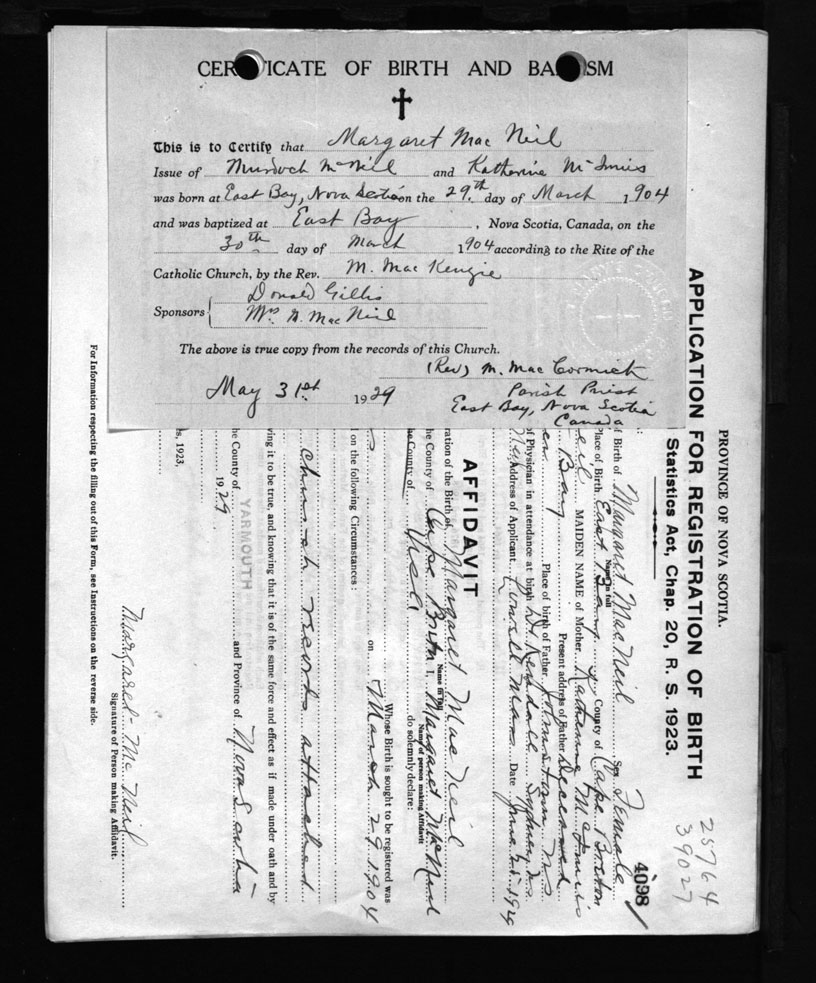 CER ICATE OF BIRTH AND BA SM
This is to Certify that Margaret Mac Neil
Issue of Murdoch McNeil and Katherine McInnis
was born at East Bay, Nova Scotia on the 29th day of March 1904
and was baptized at East Bay, Nova Scotia, Canada, on the
30th day of March 1904 according to the Rite of the
Catholic Church, by the Rev. M. Mac Kenzie
Sponsors { Donald Gillis
Mrs A. Mac Neil
The above is true copy from the records of this Church.
(Rev) M. Mac Cormick
May 31st 1929
Parish Priest
East Bay, Nova Scotia
Canada
25764
39027
4098
PROVINCE OF NOVA SCOTIA.
APPLICATION FOR REGISTRATION OF BIRTH
Statistics Act, Chap. 20, R. S. 1923.
of Birth of Margaret MacNeil Sex Female
Name in full
Place of Birth East Bay County of Cape Breton
eil MAIDEN NAME of Mother Katherine McInnis
Bay Present address of Father Deceased
en Place of birth of Father Johnstown N.S.
of Physician in attendance at birth Dr Kendall Sydney N.S.
Address of Applicant Lowell Mass Date June 21, 1929
AFFIDAVIT
ration of the Birth of Margaret Mac Neil
Name in full
he County of Cape Breton I, Margaret McNeil
Name of person making Affidavit
he County of do solemnly declare:
Whose Birth is sought to be registered was
on March 29 1904
l on the following Circumstances:
church records attached
ving it to be true, and knowing that it is of the same force and effect as if made under oath and by
YARMOUTH
he County of and Province of Nova Scotia
1929
Margaret Mc Neil
Signature of Person making Affidavit.
ds, 1923.
For Information respecting the filling out of this Form, see Instructions on the reverse side.